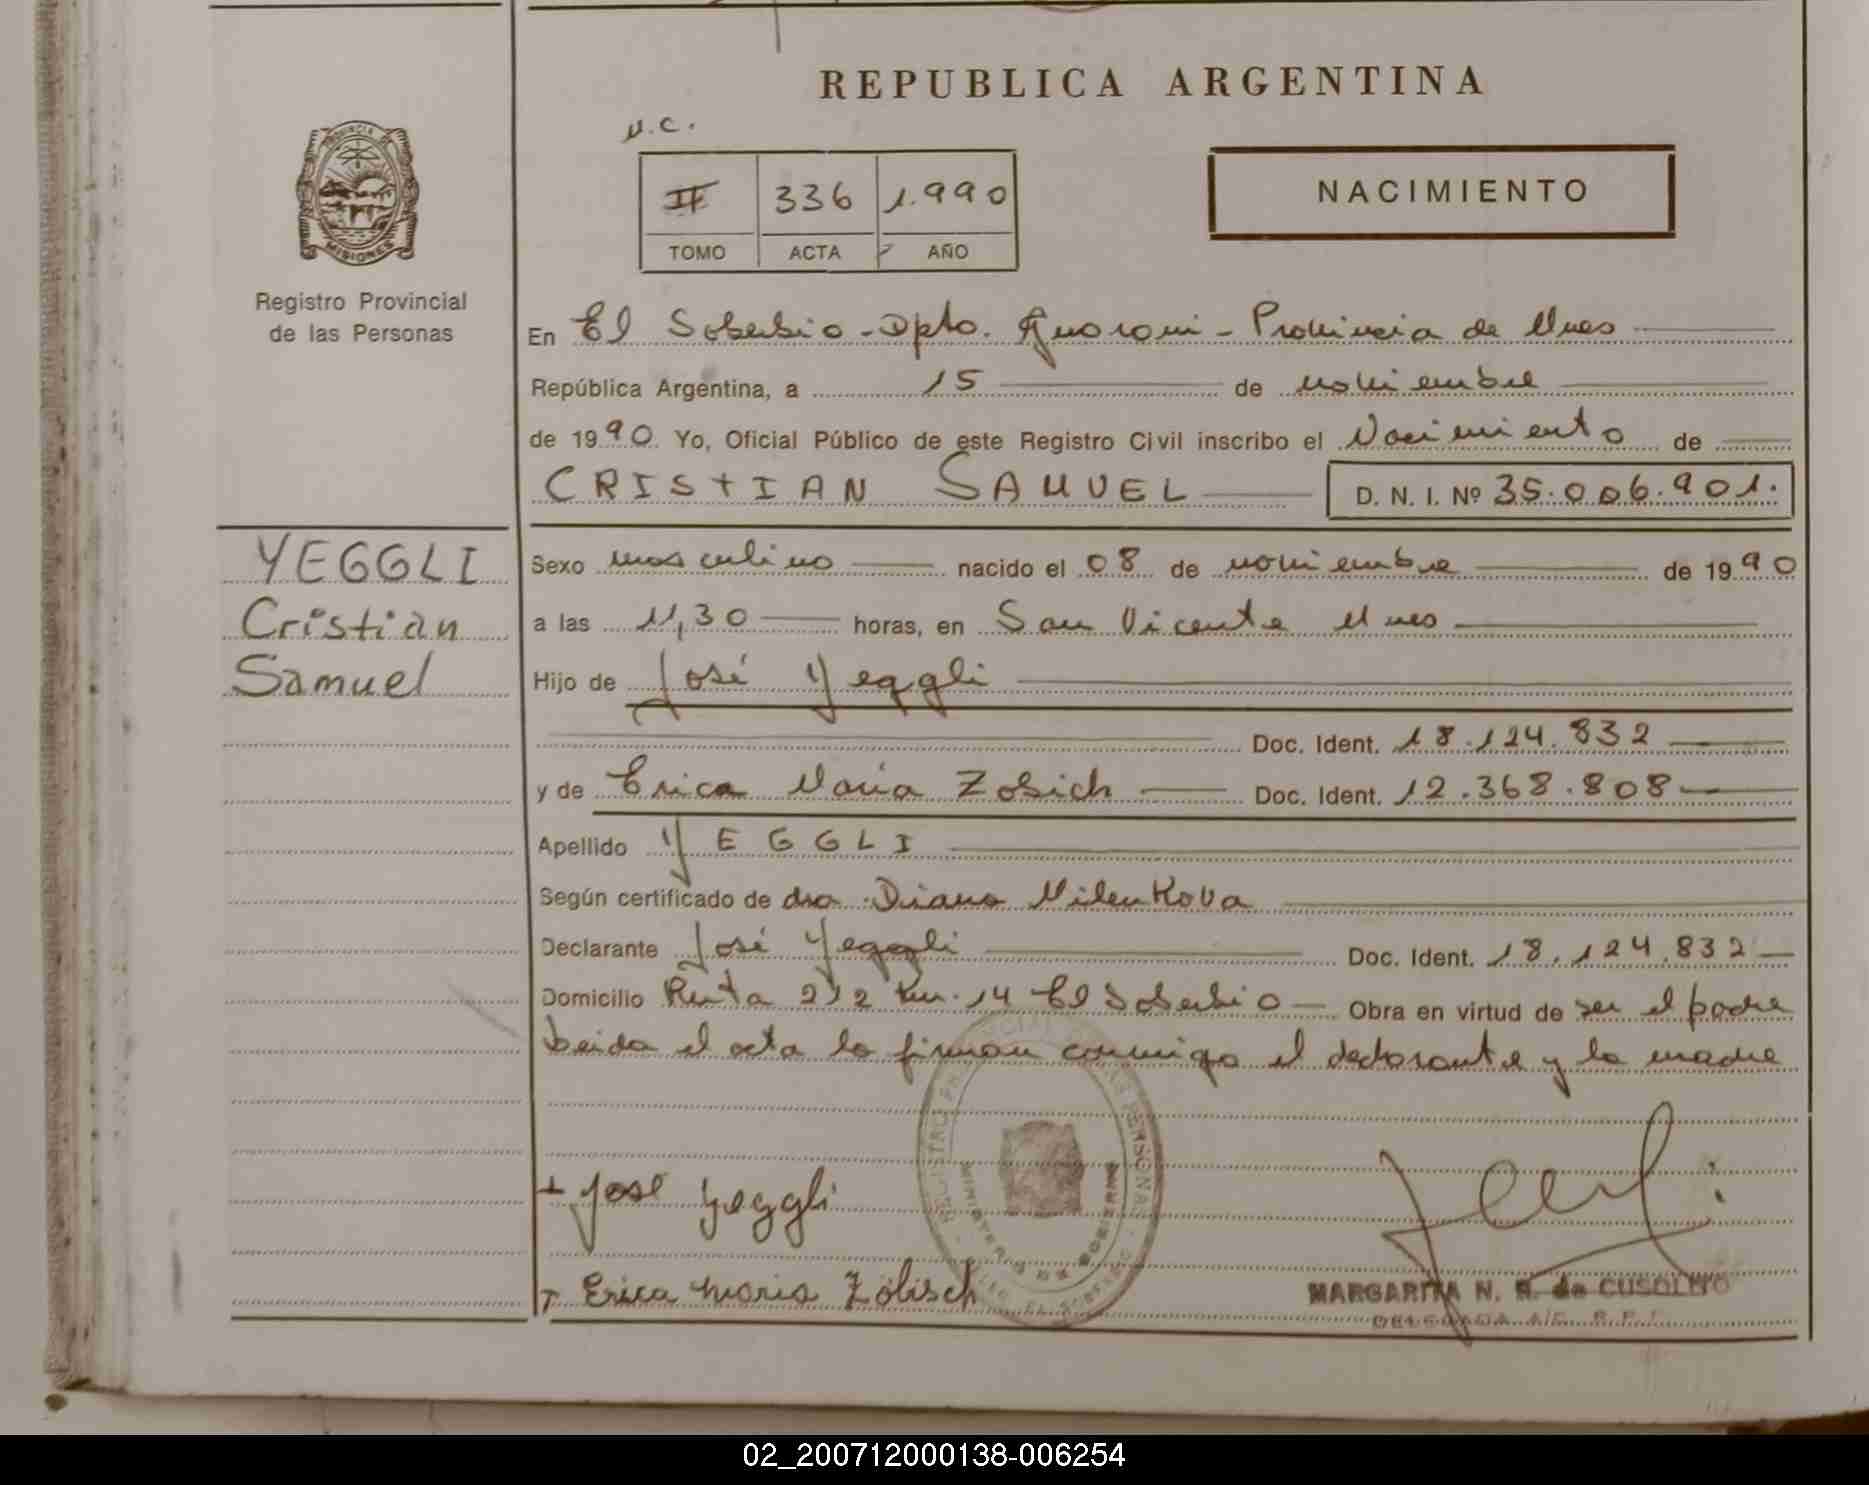 REPUBLICA ARGENTINA
N.C.
II 336 1.990
TOMO ACTA AÑO
NACIMIENTO
PROVINCIA DE
MISIONES
Registro Provincial
de las Personas
En El Soberbio - Dpto. Guarani - Provincia de Mnes
República Argentina, a 15 de noviembre
de 1990. Yo, Oficial Público de este Registro Civil inscribo el Nacimiento de
CRISTIAN SAMUEL D. N. I. Nº 35.006.901.
YEGGLI
Cristian
Samuel
Sexo masculino nacido el 08 de noviembre de 1990
a las 11,30 horas, en San Vicente Mnes
Hijo de José Yeggli
Doc. Ident. 18.124.832
y de Erica María Zobich Doc. Ident. 12.368.808
Apellido YEGGLI
Según certificado de dra. Diana Milenkova
Declarante José Yeggli Doc. Ident. 18.124.832
Domicilio Ruta 212 Km. 14 El Soberbio Obra en virtud de ser el padre
Leida el acta la firman conmigo el declarante y la madre
José Yeggli
Erica Maria Zobisch
REGISTRO DE LAS PERSONAS
MINISTERIO DE GOBIERNO
EL SOBERBIO
MARGARITA N. R. de CUSOLITO
DELEGADA A/C. R.P.
02_200712000138-006254